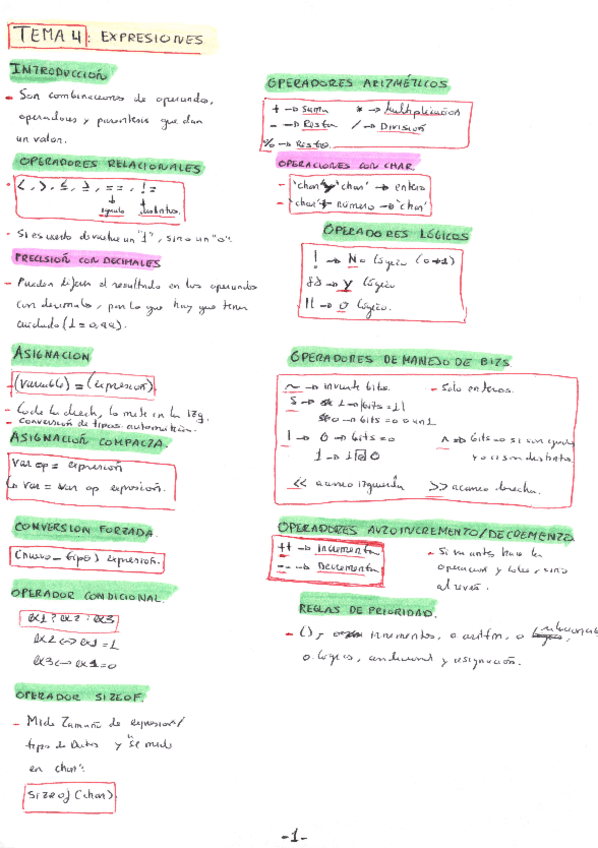 TEMA 4: EXPRESIONES
INTRODUCCIÓN
- Son combinaciones de operandos,
operadores y paréntesis que dan
un valor.
OPERADORES RELACIONALES
<, >, ≤, ≥, ==, !=
igualo distintos.
- Si es cierto devuelve un "1", sino un "0".
PRECISIÓN CON DECIMALES
- Pueden el resultado en los operandos
con decimales, por lo que hay que tener
cuidado (1 = 0,99).
ASIGNACION
- (variable) = (expresión)
- Coge la derech, lo mete en la izq.
- conversión de tipos automática.
ASIGNACIÓN COMPACTA.
Var op = expresión
↳ var = var op expresión.
CONVERSION FORZADA.
(nuevo_tipo) expresión.
OPERADOR CONDICIONAL.
ex1 ? ex2 : ex3
ex2 <-> ex1 = 1
ex3 <-> ex1 = 0
OPERADOR SIZEOF.
- Mide Tamaño de expresión/
tipo de Datos y "se mide
en char".
sizeof (char)
OPERADORES ARITMÉTICOS
+ → suma * → Multiplicación
- → Resta / → División
% → Resto.
OPERACIONES CON CHAR.
- 'char' y 'char' → entero
- 'char' + número → 'char'
OPERADORES LÓGICOS
! → No lógico (0→1)
&& → y lógico
|| → o lógico.
OPERADORES DE MANEJO DE BITS.
~ → invierte bits. - Solo enteros.
1 → bits = 11
0 → bits = 0 0 un 1
| → 0 → bits = 0 ^ → bits = 0 si son iguales
1 → 1 0 y 1 si son distintos.
<< acarreo izquierda >> acarreo derecha.
OPERADORES AUTOINCREMENTO/DECREMENTO
++ → incrementa - Si va antes hace la
-- → Decrementa operacion y luego, sino
al revés.
REGLAS DE PRIORIDAD.
- (), incrementos, o aritm, o relacionales
o. lógicos, condicional y asignación.
-1-